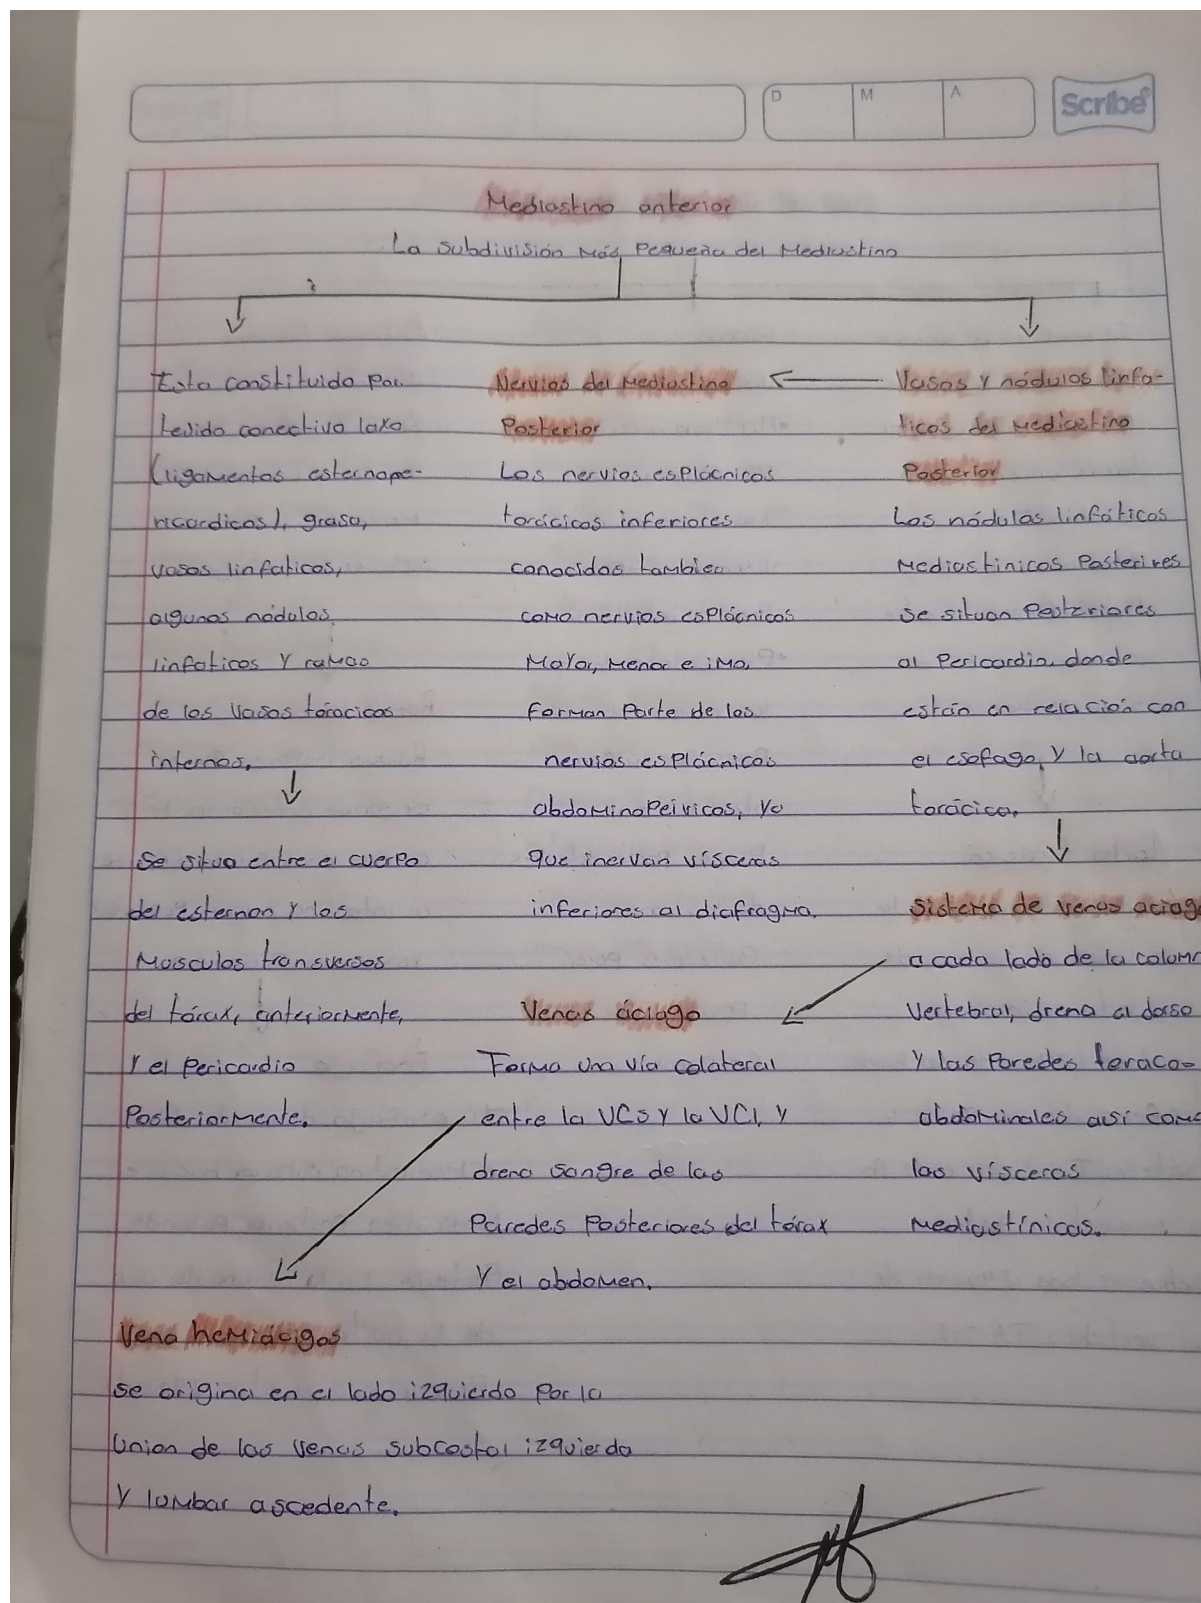 D M A
Scribe
Mediastino anterior
La subdivisión más pequeña del Mediastino
Esta constituido por
tejido conectivo laxo
(ligamentos esternope-
ricardicos), grasa,
vasos linfaticos,
algunos nodulos
linfaticos y ramas
de los vasos torácicos
internos.
Se situa entre el cuerpo
del esternon y los
Musculos transversos
del tórax, anteriormente,
y el pericardio
Posteriormente.
Nervios del Mediastino
Posterior
Los nervios esplácnicos
torácicos inferiores
conocidos tambien
como nervios esplácnicos
Mayor, menor e imo,
forman parte de los
nervios esplácnicos
abdominopelvicos, ya
que inervan vísceras
inferiores al diafragma.
Venas áciago
Forma una vía colateral
entre la VCS y la VCI, y
drena sangre de las
Paredes Posteriores del tórax
y el abdomen.
Vasos y nódulos linfa-
ticos del mediastino
Posterior
Los nódulos linfáticos
Mediastinicos Posterires
se situan Posteriores
al Pericardio, donde
están en relación con
el esofago, y la aorta
torácica.
Sistema de venas aciago
a cada lado de la column
Vertebral, drena al dorso
y las Paredes toraco-
abdominales así como
las vísceras
Mediastínicas.
Vena hemiácigos
se origina en el lado izquierdo por la
Union de las venas subcostal izquierda
y lumbar ascedente.